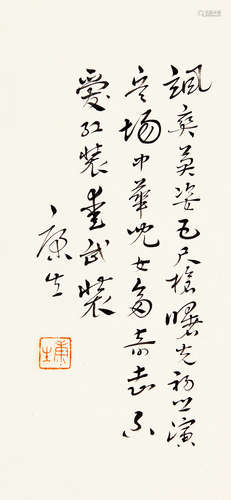 飒爽英姿五尺枪曙光初照演
兵场中华儿女多奇志不
爱红装爱武装
康生
康生